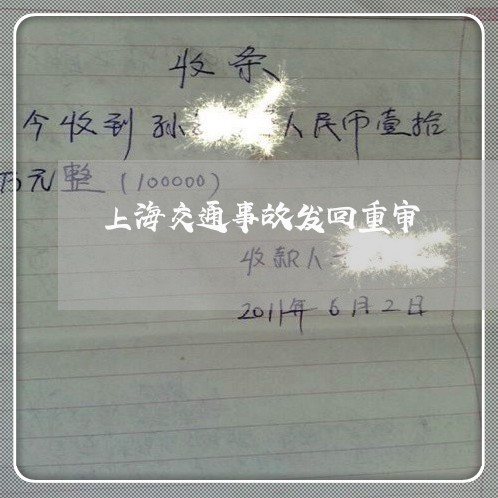 收条
今收到孙 人民币壹拾
万元整（100000）
上海交通事故发回重审
收款人
2011年6月2日